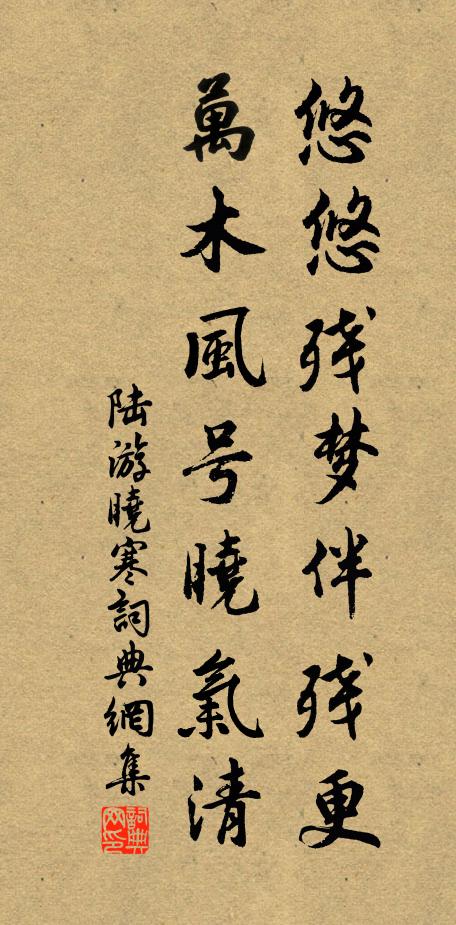 悠悠残梦伴残更
萬木風号曉氣清
陆游曉寒詞典網集
詞典网印